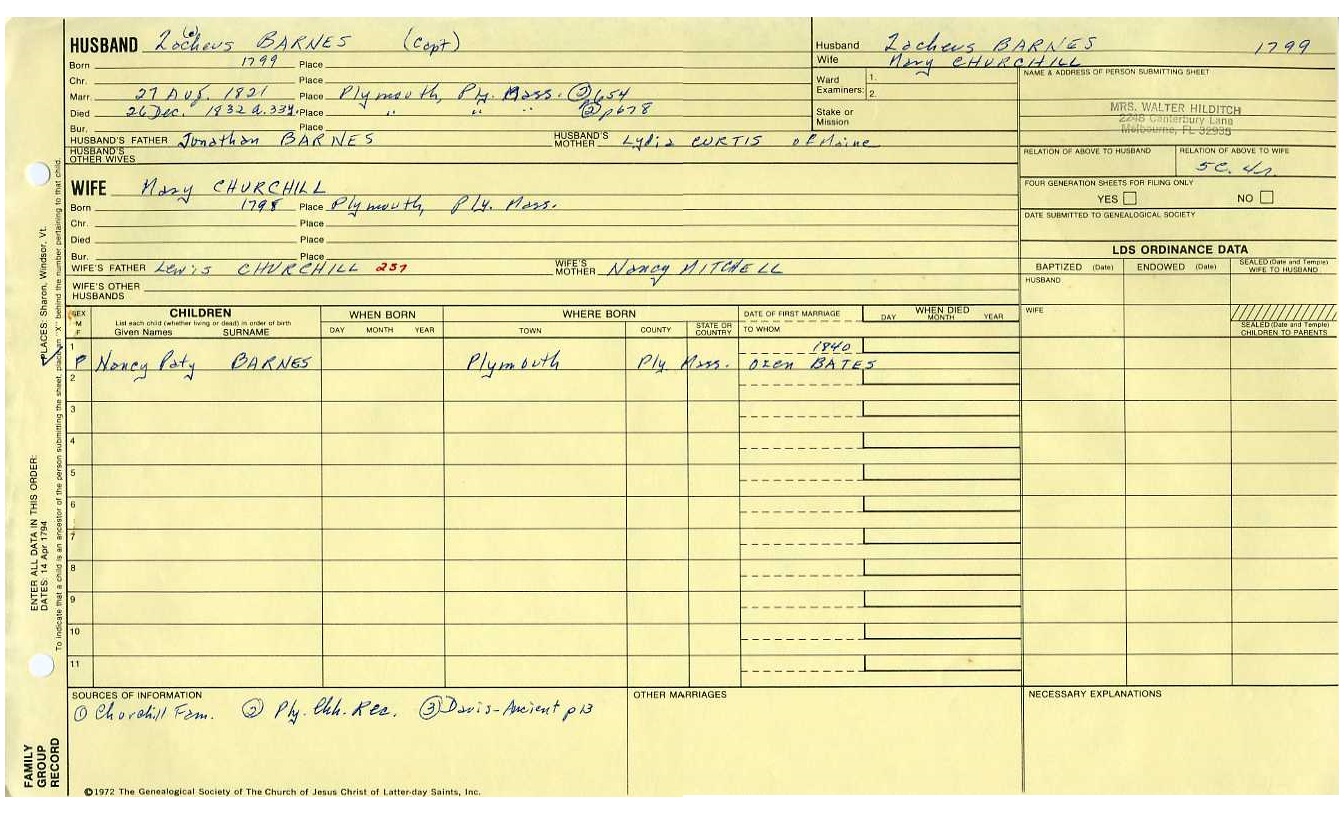 HUSBAND Zacheus BARNES (Capt)
(c)
Born 1799 Place
Chr. Place
Marr. 27 Aug. 1821 Place Plymouth, Ply. Mass. ② p654
Died 26 Dec. 1832 a.33y. Place " " " ② p678
Bur. Place
HUSBAND'S FATHER Jonathan BARNES HUSBAND'S MOTHER Lydia CURTIS of Maine
HUSBAND'S OTHER WIVES
WIFE Mary CHURCHILL
Born 1798 Place Plymouth, Ply. Mass.
Chr. Place
Died Place
Bur. Place
WIFE'S FATHER Lewis CHURCHILL 257 WIFE'S MOTHER Nancy MITCHELL
WIFE'S OTHER HUSBANDS
Husband Zacheus BARNES 1799
Wife Mary CHURCHILL
Ward Examiners: 1.
2.
Stake or Mission
NAME & ADDRESS OF PERSON SUBMITTING SHEET
MRS. WALTER HILDITCH
2248 Canterbury Lane
Melbourne, FL 32935
RELATION OF ABOVE TO HUSBAND RELATION OF ABOVE TO WIFE
5C. 4r.
FOUR GENERATION SHEETS FOR FILING ONLY
YES NO
DATE SUBMITTED TO GENEALOGICAL SOCIETY
LDS ORDINANCE DATA
BAPTIZED (Date) ENDOWED (Date) SEALED (Date and Temple) WIFE TO HUSBAND
HUSBAND
WIFE
SEALED (Date and Temple) CHILDREN TO PARENTS
SEX M F
CHILDREN
List each child (whether living or dead) in order of birth
Given Names SURNAME
WHEN BORN
DAY MONTH YEAR
WHERE BORN
TOWN COUNTY STATE OR COUNTRY
DATE OF FIRST MARRIAGE
TO WHOM
WHEN DIED
DAY MONTH YEAR
1 1840
F Nancy Paty BARNES Plymouth Ply Mass. Ozen BATES
2
3
4
5
6
7
8
9
10
11
SOURCES OF INFORMATION
① Churchill Fam. ② Ply. Chh. Rec. ③ Davis-Ancient p13
OTHER MARRIAGES
NECESSARY EXPLANATIONS
ENTER ALL DATA IN THIS ORDER:
DATES: 14 Apr 1794
PLACES: Sharon, Windsor, Vt.
To indicate that a child is an ancestor of the person submitting the sheet, place an "X" behind the number pertaining to that child.
FAMILY
GROUP
RECORD
©1972 The Genealogical Society of The Church of Jesus Christ of Latter-day Saints, Inc.